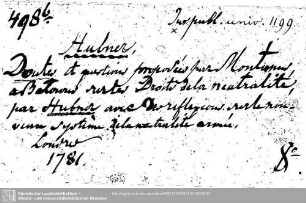 498b.
Jus publ. univ. 1199.
Hubner,
Doutes et questions proposées par Montanus
à Batavus sur les Droits de la neutralité,
par Hubner avec des reflexions sur le nou-
veau Systême de la neutralité armée.
Londres
1781.
8o
Sächsische Landesbibliothek -
Staats- und Universitätsbibliothek Dresden